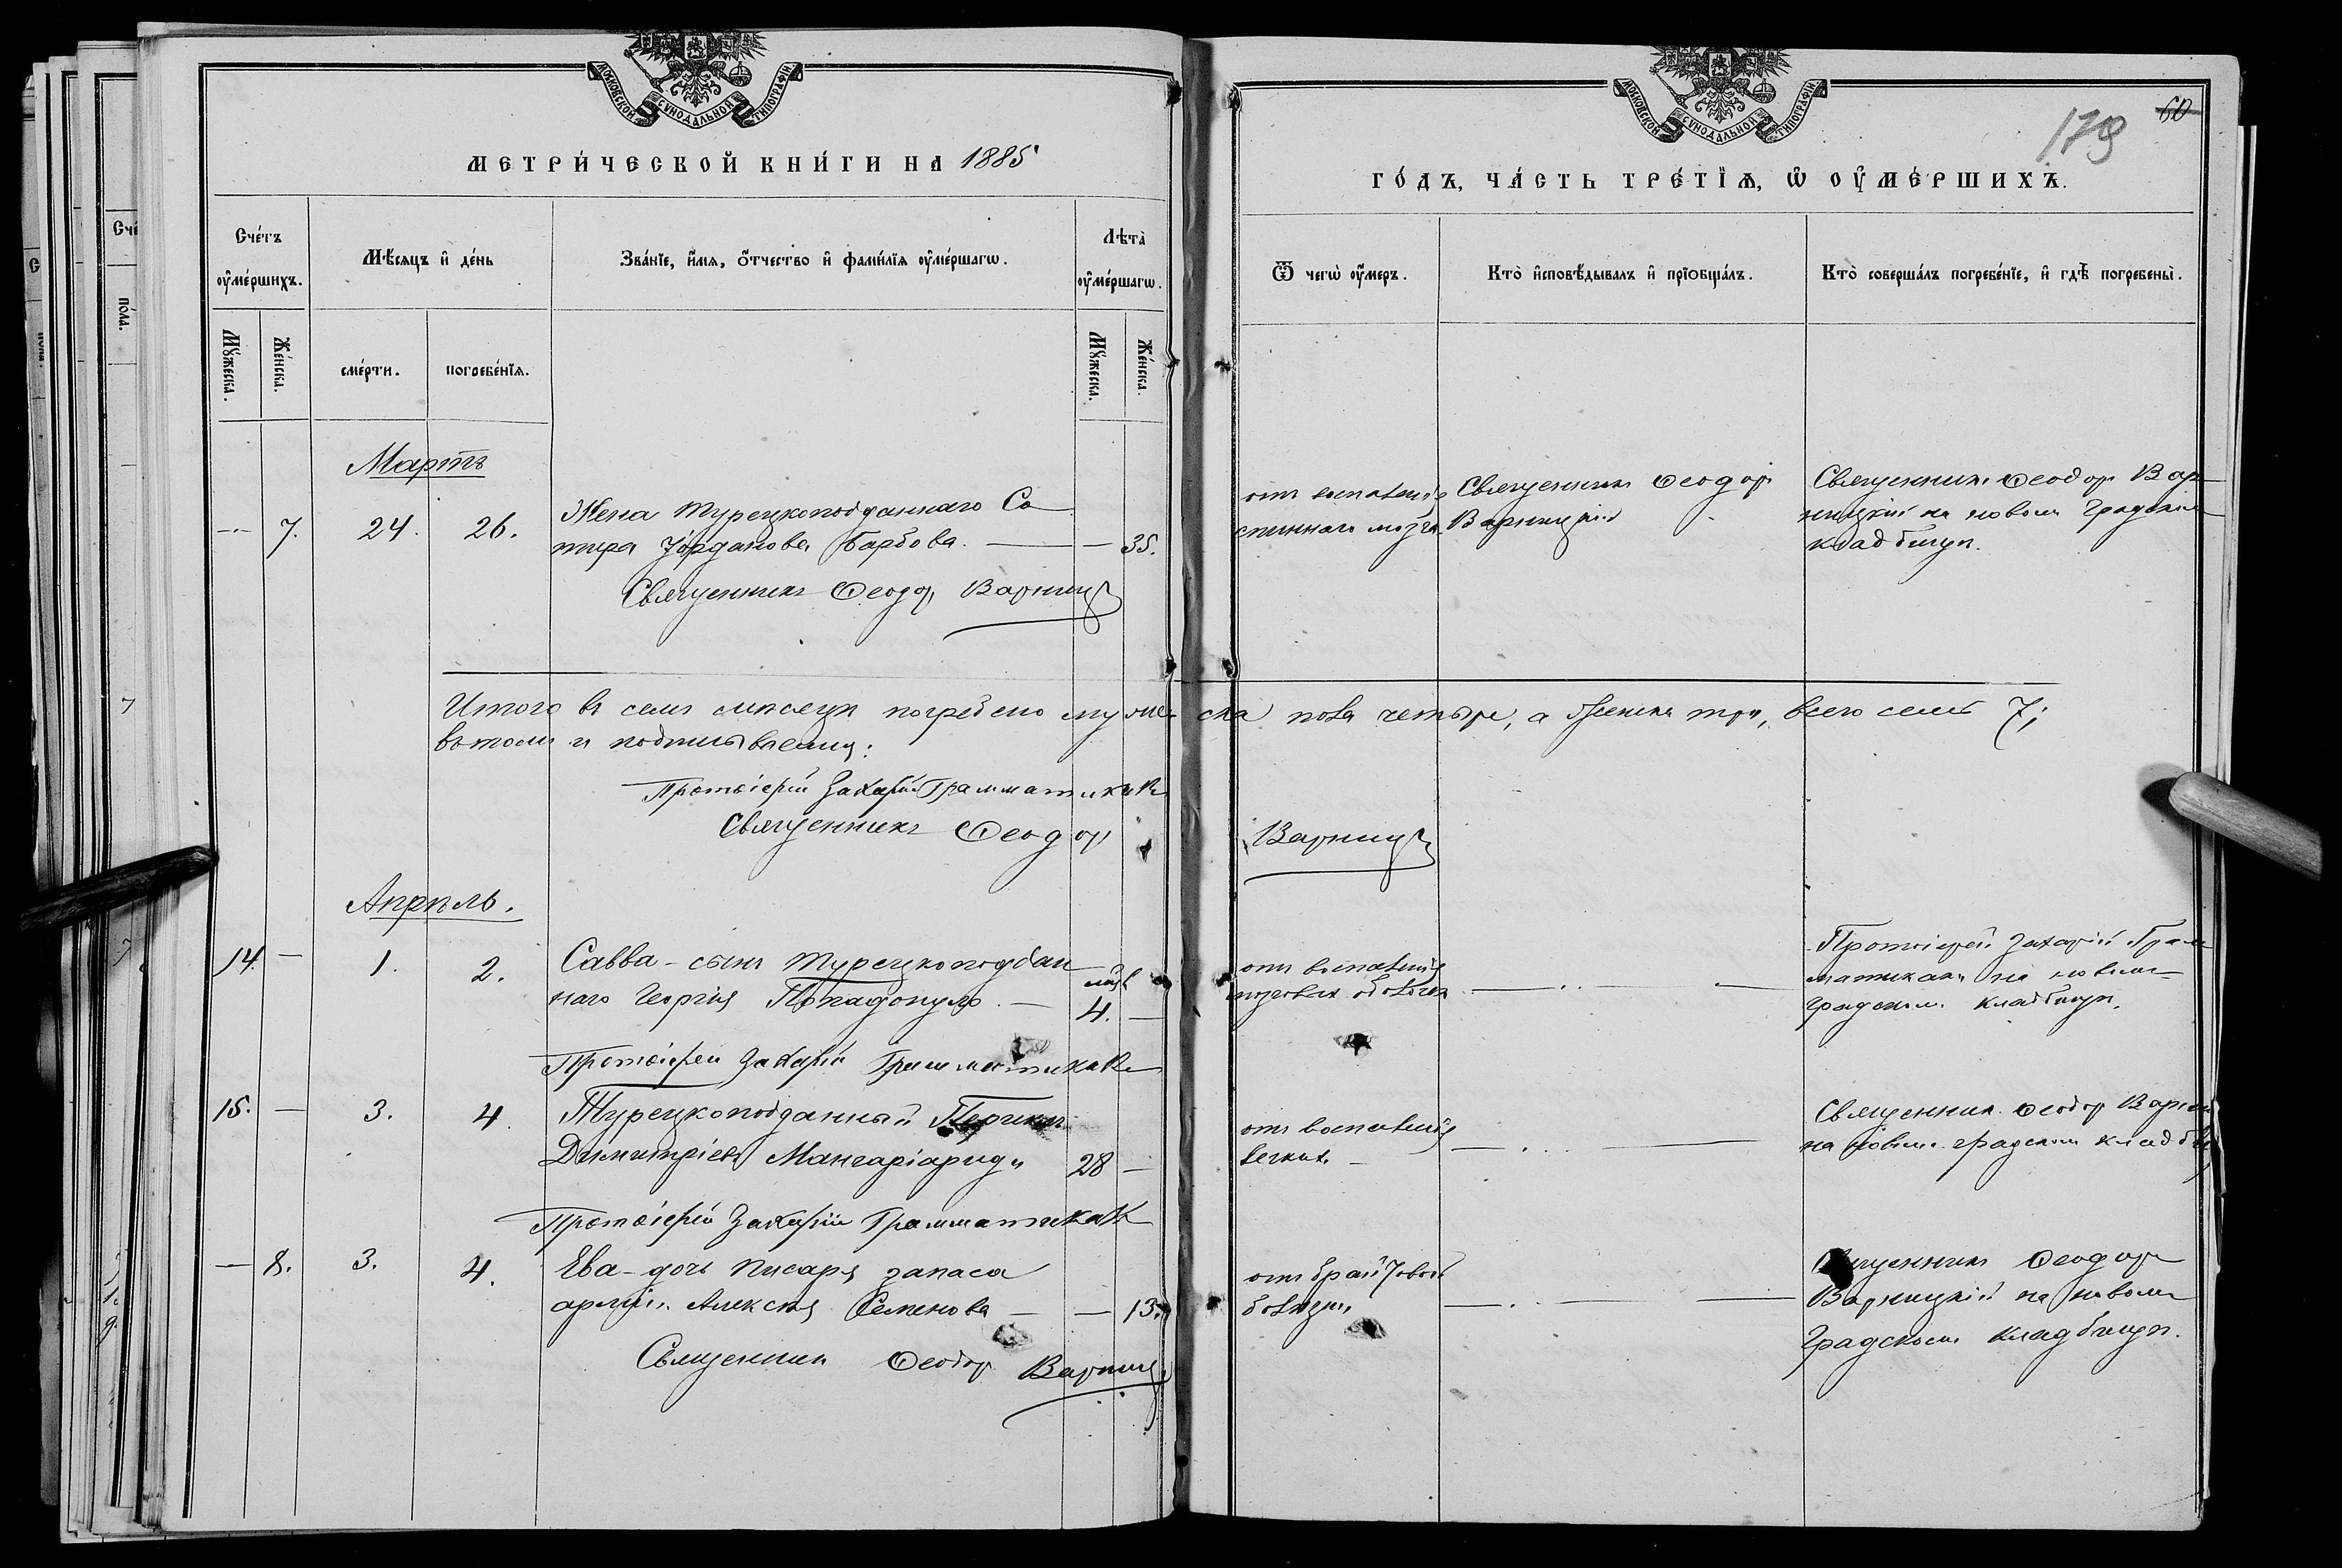 МОСКОВСКОЙ СѴНОДАЛЬНОЙ ТИПОГРАФІИ.
МЕТРИ́ЧЕСКОЙ КНИ́ГИ НА 1885
Сче́тъ ᲂу҆ме́ршихъ.
Мѣ́сяцъ и҆ де́нь
Зва́нїе, и҆́мѧ, ѻ҆́тчество и҆ фами́лїѧ ᲂу҆ме́ршагѡ.
Лѣта̀ ᲂу҆ме́ршагѡ.
Мꙋ́жеска.
Же́нска.
сме́рти.
погребе́нїѧ.
Мꙋ́жеска.
Же́нска.
Мартъ
— 7. 24. 26. Жена Турецкоподданнаго Со
тира Іорданова Барбова. — — 35.
Священникъ Ѳеодор Варниц
Итого въ семъ мѣсяцѣ погребено мужес ска пола четыре, а женска три, всего семь 7;
въ томъ и подписываемся:
Протоіерей Захарій Грамматикаки
Священникъ Ѳеодор Варниц
Апрѣль.
14. — 1. 2. Савва - сынъ Турецкоподдан
наго Георгія Попадопуло. — 4. —
Протоіерей Захарій Грамматикаки
15. — 3. 4. Турецкоподданный
Димитріевъ 28 —
Протоіерей Захарій Грамматикаки
— 8. 3. 4. Ева - дочь писаря запаса
арміи Алексѣя Семенова — — 13.
Священникъ Ѳеодор Варниц
МОСКОВСКОЙ СѴНОДАЛЬНОЙ ТИПОГРАФІИ.
60
179
ГО́ДЪ, ЧА́СТЬ ТРЕ́ТЇѦ, Ѡ҆ ᲂУ҆МЕ́РШИХЪ.
Ѿ чегѡ̀ ᲂу҆́меръ.
Кто̀ и҆сповѣ́дывалъ и҆ прїѡбща́лъ.
Кто̀ соверша́лъ погребе́нїе, и҆ гдѣ̀ погребены̀.
отъ воспаленія
спиннаго мозга
Священникъ Ѳеодоръ
Варницкій
Священникъ Ѳеодоръ Вар
ницкій на новомъ Градскомъ
кладбищѣ.
отъ воспаленія
мозговыхъ оболочекъ
Протоіерей Захарій Грам
матикаки на новомъ
градскомъ кладбищѣ.
отъ воспаленія
легкихъ —
Священникъ Ѳеодоръ Варниц
на новомъ градскомъ кладби
отъ брайтовой
болѣзни
Священникъ Ѳеодоръ
Варницкій на новомъ
Градскомъ кладбищѣ.